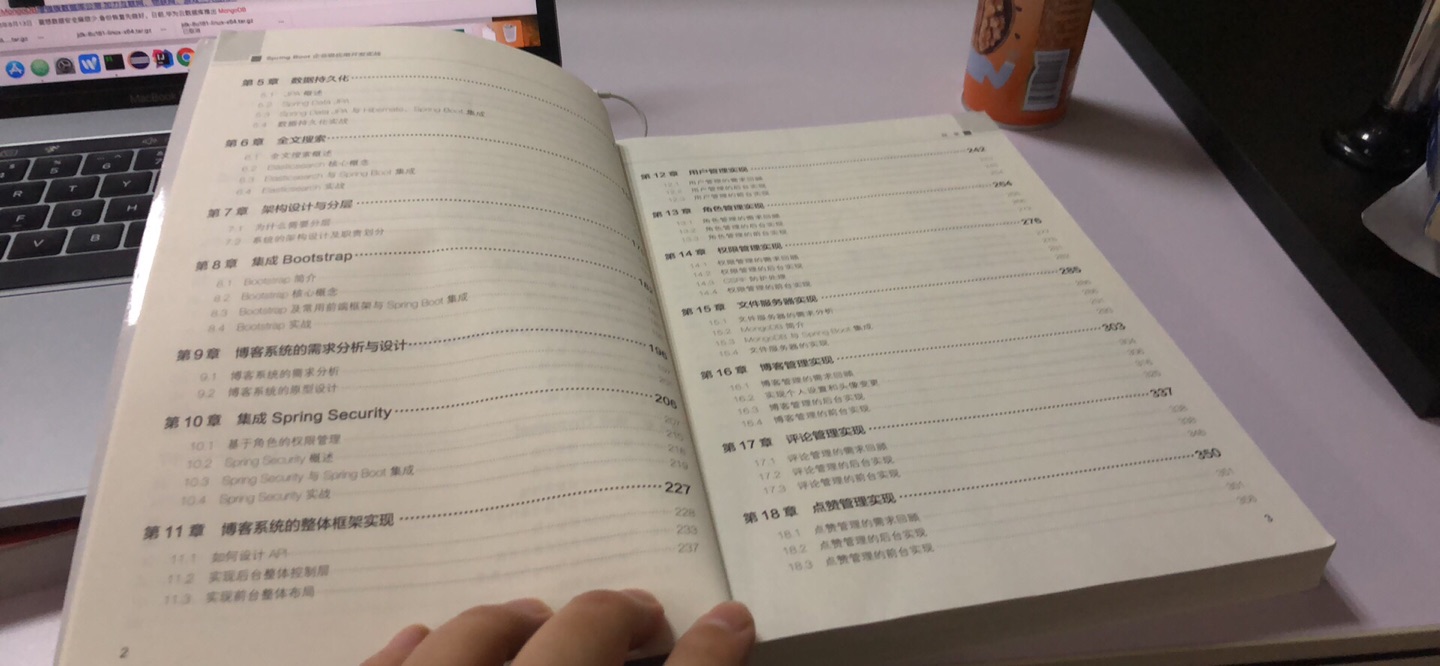 Spring Boot 企业级应用开发实战
第 5 章 数据持久化
5.1 JPA 概述
5.2 Spring Data JPA
5.3 Spring Data JPA 与 Hibernate、Spring Boot 集成
5.4 数据持久化实战
第 6 章 全文搜索
6.1 全文搜索概述
6.2 Elasticsearch 核心概念
6.3 Elasticsearch 与 Spring Boot 集成
6.4 Elasticsearch 实战
第 7 章 架构设计与分层
7.1 为什么需要分层
7.2 系统的架构设计及职责划分
第 8 章 集成 Bootstrap
8.1 Bootstrap 简介
8.2 Bootstrap 核心概念
8.3 Bootstrap 及常用前端框架与 Spring Boot 集成
8.4 Bootstrap 实战
第 9 章 博客系统的需求分析与设计 196
9.1 博客系统的需求分析
9.2 博客系统的原型设计
第 10 章 集成 Spring Security 206
10.1 基于角色的权限管理 207
10.2 Spring Security 概述 210
10.3 Spring Security 与 Spring Boot 集成 216
10.4 Spring Security 实战 219
第 11 章 博客系统的整体框架实现 227
11.1 如何设计 API 228
11.2 实现后台整体控制层 233
11.3 实现前台整体布局 237
2
目 录
第 12 章 用户管理实现 242
12.1 用户管理的需求回顾
12.2 用户管理的后台实现
12.3 用户管理的前台实现
第 13 章 角色管理实现 264
13.1 角色管理的需求回顾
13.2 角色管理的后台实现
13.3 角色管理的前台实现
第 14 章 权限管理实现 276
14.1 权限管理的需求回顾
14.2 权限管理的后台实现
14.3 CSRF 防护处理
14.4 权限管理的前台实现
第 15 章 文件服务器实现 285
15.1 文件服务器的需求分析
15.2 MongoDB 简介
15.3 MongoDB 与 Spring Boot 集成
15.4 文件服务器的实现
第 16 章 博客管理实现 303
16.1 博客管理的需求回顾 304
16.2 实现个人设置和头像变更 306
16.3 博客管理的后台实现 316
16.4 博客管理的前台实现 325
第 17 章 评论管理实现 337
17.1 评论管理的需求回顾 338
17.2 评论管理的后台实现 338
17.3 评论管理的前台实现 346
第 18 章 点赞管理实现 350
18.1 点赞管理的需求回顾 351
18.2 点赞管理的后台实现 351
18.3 点赞管理的前台实现 356
3
MacBook